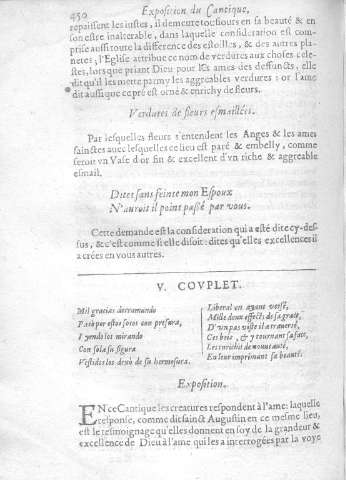 450 Exposition du Cantique,
repaissent les iustes, il demeure tousiours en sa beauté & en
son estre inalterable, dans laquelle consideration est com-
prise aussi toute la difference des estoilles, & des autres pla-
netes; l'Eglise attribue ce nom de verdures aux choses cele-
stes, lors que priant Dieu pour les ames des deffuncts, elle
dit qu'il les mette parmy les aggreables verdures: or l'ame
dit aussi que ce pré est orné & enrichy de fleurs.
Verdures de fleurs esmaillées.
Par lesquelles fleurs s'entendent les Anges & les ames
sainctes auec lesquelles ce lieu est paré & embelly, comme
seroit vn Vase d'or fin & excellent d'vn riche & aggreable
esmail.
Dites sans feinte mon Espoux
N'auroit il point passé par vous.
Cette demande est la consideration qui a esté dite cy-des-
sus, & c'est comme si elle disoit: dites qu'elles excellences il
a crées en vous autres.
V. COVPLET.
Mil gracias derramando
Passò por estos sotos con presura,
I yendolos mirando
Con sola su figura
Vestidos los dexò de su hermosura.
Liberal en ayant versé,
Mille doux effects de sa grace,
D'vn pas viste il a trauersé,
Ces bois, & y tournant sa face,
Les enrichit de nouueauté,
En leur imprimant sa beauté.
Exposition.
EN ce Cantique les creatures respondent à l'ame: laquelle
response, comme dit sainct Augustin en ce mesme lieu,
est le tesmoignage qu'elles donnent en soy de la grandeur &
excellence de Dieu à l'ame qui les a interrogées par la voye